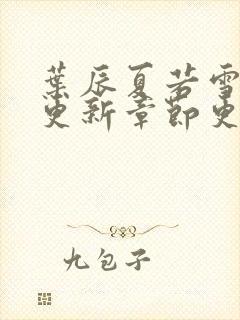 葉辰夏若雪
更新章節更
九包子